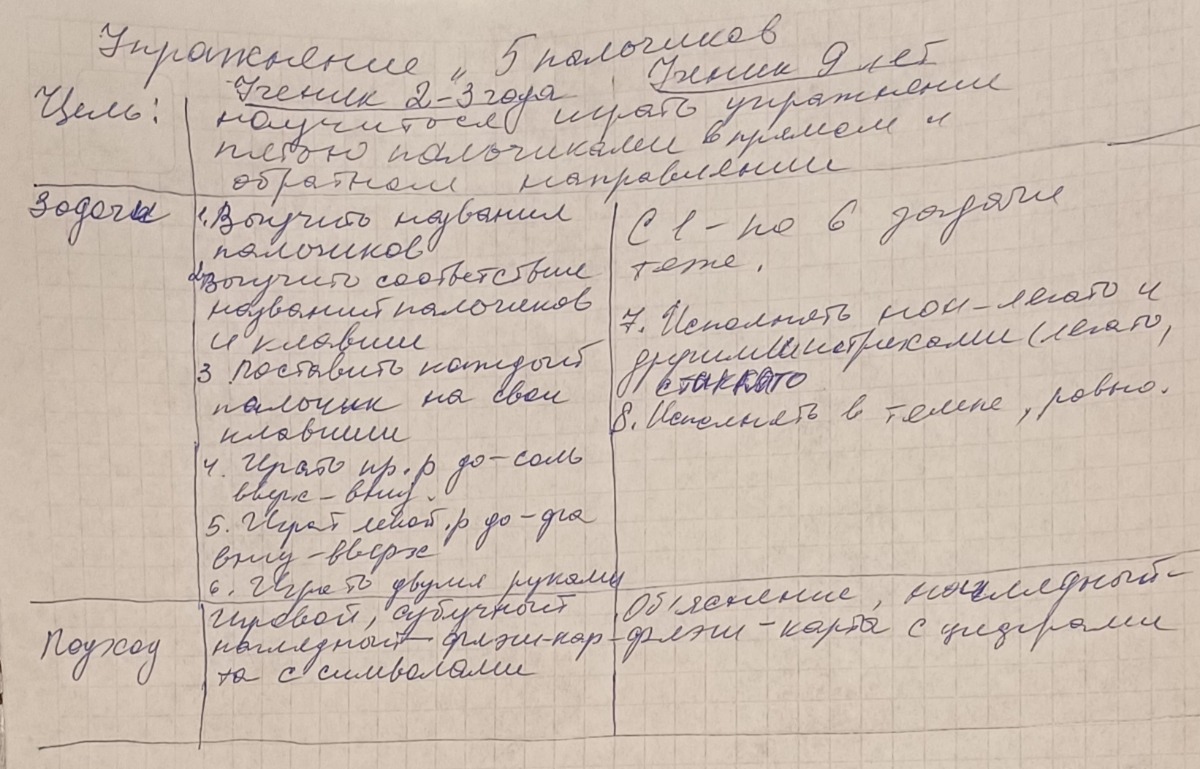 Упражнение „ 5 пальчиков
Ученик 2-3 года
Ученик 9 лет
Цель:
научиться играть упражнение
пятью пальчиками в прямом и
обратном направлении
Задачи
1. Выучить названия
пальчиков
2. Выучить соответствие
названий пальчиков
и клавиши
3 поставить каждый
пальчик на свои
клавиши
4. Играть пр. р до-соль
вверх-вниз.
5. Играт левой р до-фа
вниз-вверх
6. Играть двумя руками
С 1-по 6 задачи
теже.
7. Исполнять нон-легато и
другими штрихами (легато,
стаккато
8. Исполнять в темпе, ровно.
Подход
игровой,
наглядный-флэш-кар-
та с символами
Объяснение, наглядный-
флэш-карта с цифрами